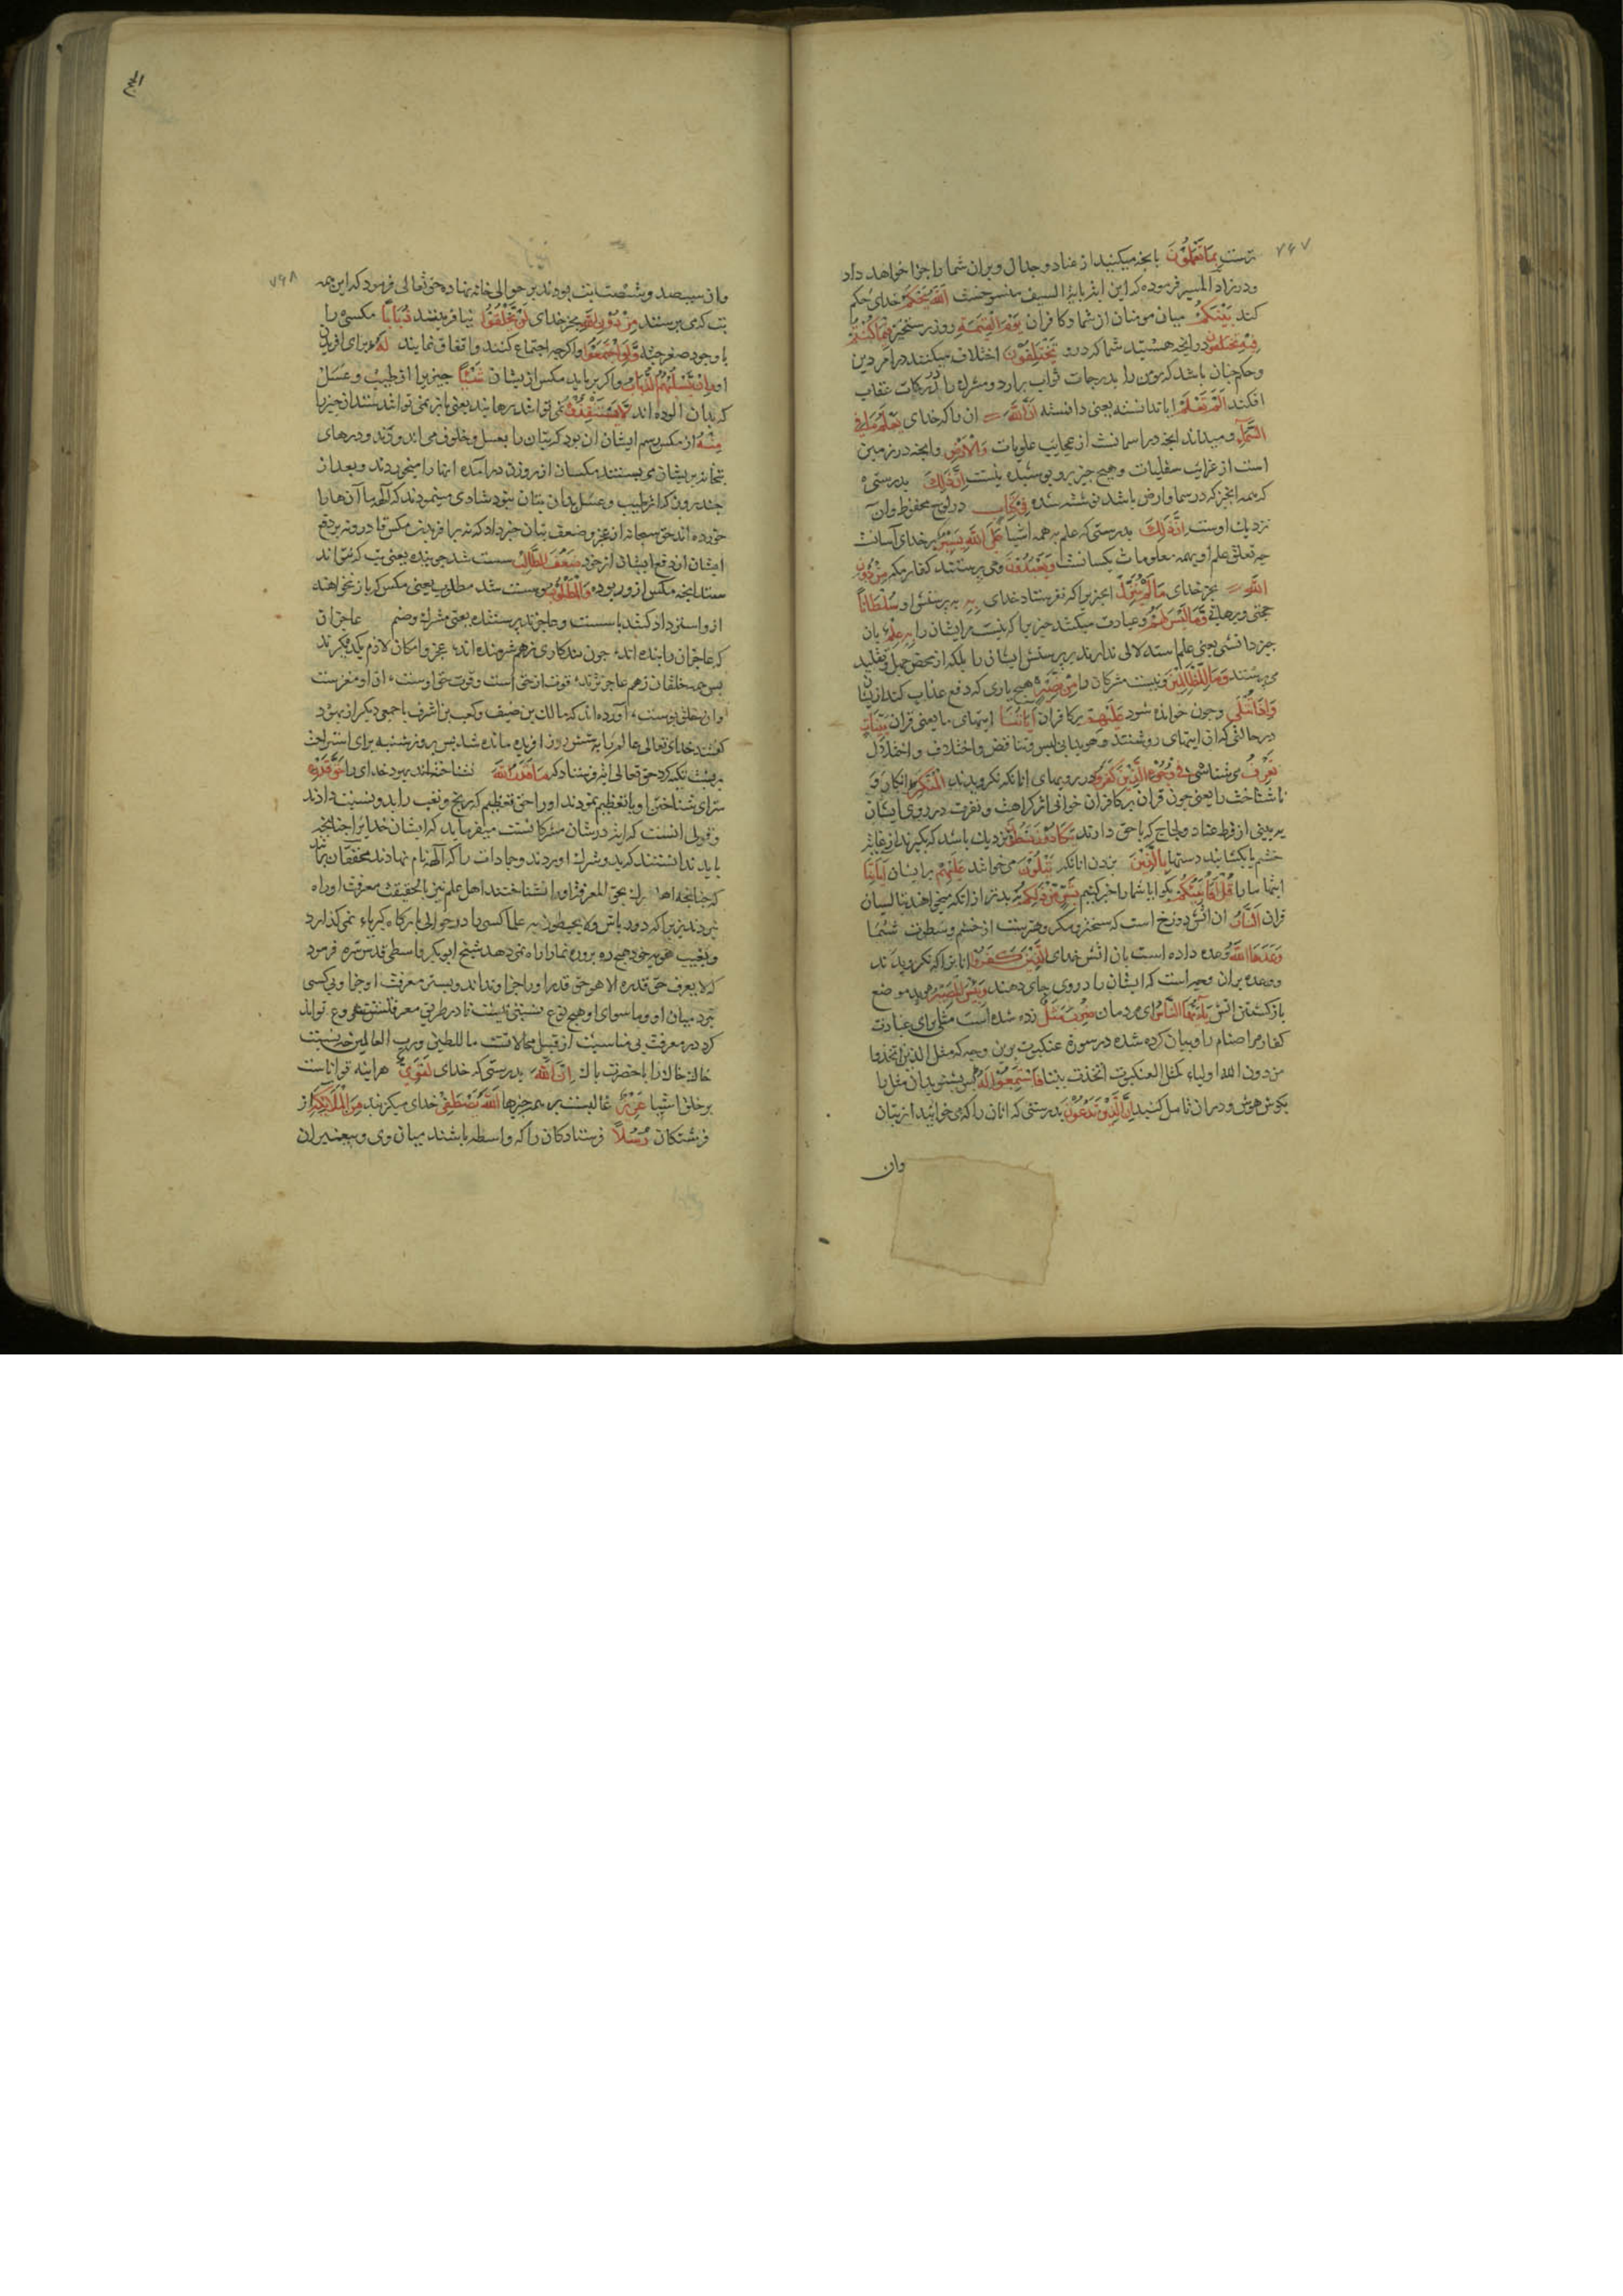 ۷۶۷
ترست بِمَا تَعْمَلُونَ بانچه میکنید از عناد و جدال و بران شما را جزا خواهد داد
و در زاد المسیر فرموده که این ایه بایة السیف منسوخست اَللّٰهُ یَحْکُمُ خدای حکم
کند بَیْنَکُمْ میان مومنان از شما و کافران یَوْمَ الْقِیٰمَةِ روز رستخیز فِیمَا کُنْتُمْ
فِیهِ تَخْتَلِفُونَ در انچه هستید شما که درو تَخْتَلِفُونَ اختلاف میکنند در امر دین
و حکم چنان باشد که مومن را بدرجات ثواب برارد و مشرک را در درکات عقاب
افکند اَلَمْ تَعْلَمْ ایا ندانسته یعنی دانسته اَنَّ اللّٰهَ ان را که خدای یَعْلَمُ مَا فِی
السَّمَآءِ و میداند انچه در اسمانست از عجایب علویات وَالْاَرْضِ و انچه در زمین
است از غرایب سفلیات و هیچ چیز برو پوشیده نیست اِنَّ ذٰلِکَ بدرستی
که همه انچیز که در سما و ارض باشد نوشته شده فِی کِتَابٍ در لوح محفوظ و ان
نزدیک اوست اِنَّ ذٰلِکَ بدرستی که علم به همه اشیا عَلَی اللّٰهِ یَسِیرٌ بر خدای آسانست
چه تعلق علم او بهمه معلومات یکسانست وَیَعْبُدُونَ و می پرستند کفار مکه مِنْ دُونِ
اللّٰهِ بجز خدای مَا لَمْ یُنَزِّلْ انچیز را که نفرستاد خدای بِهِ به پرستش او سُلْطَانًا
حجتی و برهانی وَمَا لَیْسَ لَهُمْ و عبادت میکنند چیزیرا که نیست مر ایشان را بِهِ عِلْمٌ بان
چیز دانشی یعنی علم استدلالی ندارند بر پرستش ایشان را بلکه از محض جهل و تقلید
می پرستند وَمَا لِلظَّالِمِینَ و نیست مشرکان را مِنْ نَصِیرٍ هیچ یاری که دفع عذاب کند از ایشان
وَاِذَا تُتْلٰی و چون خوانده شود عَلَیْهِمْ بر کافران اٰیَاتُنَا ایتهای ما یعنی قران بَیِّنَاتٍ
در حالتی که ان ایتهای روشنند و هویدا بی لبس و تناقض و اختلاف و اختلال
تَعْرِفُ می شناسی فِی وُجُوهِ الَّذِینَ کَفَرُوا در رویهای انانکه نکرویدند الْمُنْکَرَ انکار و
ناشناخت را یعنی چون قران بر کافران خوانی اثر کراهت و نفرت در روی ایشان
به بینی از فرط عناد و لجاج که با حق دارند یَکَادُونَ یَسْطُونَ نزدیک باشد که بکیرند از غایت
خشم یا بکشایند دستها بِالَّذِینَ بزدن انانکه یَتْلُونَ می خوانند عَلَیْهِمْ بر ایشان اٰیَاتِنَا
ایتهای ما را قُلْ اَفَاُنَبِّئُکُمْ بکو ایا شما را خبر کنم بِشَرٍّ مِنْ ذٰلِکُمْ به بدتر از انکه میخواهند بتالیان
قران اَلنَّارُ ان اتش دوزخ است که سختر و مکروهترست از خشم و سطوت شما
وَعَدَهَا اللّٰهُ وعده داده است بان اتش خدای الَّذِینَ کَفَرُوا انانرا که نکرویدند
و وعده بران وجه است که ایشان را در وی جای دهند وَبِئْسَ الْمَصِیرُ و بد موضع
بازکشتن اتش یَا اَیُّهَا النَّاسُ ای مردمان ضُرِبَ مَثَلٌ زده شده است مثلی برای عبادت
کفار مر اصنام را و بیان کرده شده در سورة عنکبوت برین وجه که مثل الذین اتخذوا
من دون الله اولیاء کمثل العنکبوت اتخذت بیتا فَاسْتَمِعُوا لَهُ پس بشنوید ان مثل را
بکوش هوش و دران تامل کنید اِنَّ الَّذِینَ تَدْعُونَ بدرستی که انان را که می خوانید از بتان
وان
۷۶۸
وان سیصد و شصت بت بودند بر حوالی خانه نهاده حق تعالی فرمود که این همه
بت که می پرستند مِنْ دُونِ اللّٰهِ بجز خدای لَنْ یَخْلُقُوا نیافرینند ذُبَابًا مکسی را
با وجود صغر جثه وَلَوِ اجْتَمَعُوا و اکرچه اجتماع کنند و اتفاق نمایند لَهُ برای افریدن
او وَاِنْ یَسْلُبْهُمُ الذُّبَابُ و اکر برباید مکس از یشان شَیْئًا چیزیرا از طیب و عسل
که بدان الوده اند لَا یَسْتَنْقِذُوهُ نمی توانند رهانید یعنی باز نمی توانند ستد ان چیز را
مِنْهُ از مکس رسم ایشان ان بود که بتان را بعسل و خلوق می اندودند و درهای
بتخانه بریشان می بستند مکسان از روزن درامده انها را میخوردند و بعد از
چند روز که اثر طیب و عسل بدان بتان نبود شادی مینمودند که آلهه ما آن ها را
خورده اند حق سبحانه از عجز و ضعف بتان خبر داد که نه بر افریدن مکس قادرند و نه بر دفع
ایشان از دفع ایشان از خود ضَعُفَ الطَّالِبُ سست شد جوینده یعنی بت که نتواند
ستد انچه مکس ازو ربوده وَالْمَطْلُوبُ و سست شد مطلوب یعنی مکس که باز نخواهند
ازو استرداد کنند یا سست و عاجزند پرستنده یعنی مشرک و صنم عاجزان
که عاجزان را بنده اند چون بندکان زهم شرمنده اند عجز و امکان لازم یکدیکرند
پس همه خلقان زهم عاجزترند قوت از حق است و قوت حق اوست ان او مغزست
وان خلق پوست آورده اند که مالک بن ضیف و کعب بن اشرف با جمعی دیکر از یهود
کفتند خدای تعالی عالم را به شش روز افریده مانده شد پس روز شنبه برای استراحت
به پشت تکیه کرد حق تعالی ایه فرستاد که مَا قَدَرُوا اللّٰهَ نشناخته اند یهود خدای را حَقَّ قَدْرِهِ
سزای شناختن او یا تعظیم ننمودند او را حق تعظیم که رنج و تعب را بدو نسبت دادند
و قولی انست که ایه در شان مشرکانست میفرماید که ایشان خدایرا چنانچه
باید ندانستند که بدو شرک اوردند و جمادات را که آلهه نام نهادند محققان برانند
که چنانچه اهل شرک بحق المعرفة او را نشناختند اهل علم نیز بالحقیقت معرفت او راه
نبردند زیرا که دور باش ولا یحیطون به علما کسی را در حوالی بارکاه کبریاء نمی کذارد
و بغیب هویه خود هیچ ره رونده را راه نمی دهد شیخ ابو بکر واسطی قدس سره فرمود
که لا یعرف حق قدره الا هو حق قدر او را جز او نداند و بستر معرفت او جز او پی کسی
نبرد میان او و ما سوای او هیچ نوع نسبتی نیست تا در طریق معرفتش شروع تواند
کرد در معرفت بی مناسبت از قبیل محالاتست ما للطین و رب العالمین چه نسبت
خاک خاک را با حضرت پاک اِنَّ اللّٰهَ بدرستی که خدای لَقَوِیٌّ هراینه تواناست
بر خلق اشیا عَزِیزٌ غالبست بر همه چیزها اَللّٰهُ یَصْطَفِی خدای میکزیند مِنَ الْمَلٰئِکَةِ از
فرشتکان رُسُلًا فرستادکان را که واسطه باشند میان وی و پیغمبران